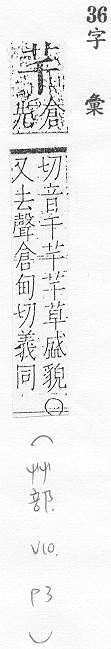 36
字彙
芊
倉
先
切音千芊芊草盛貌○
又去聲倉甸切義同
(艸部. V10. P3)